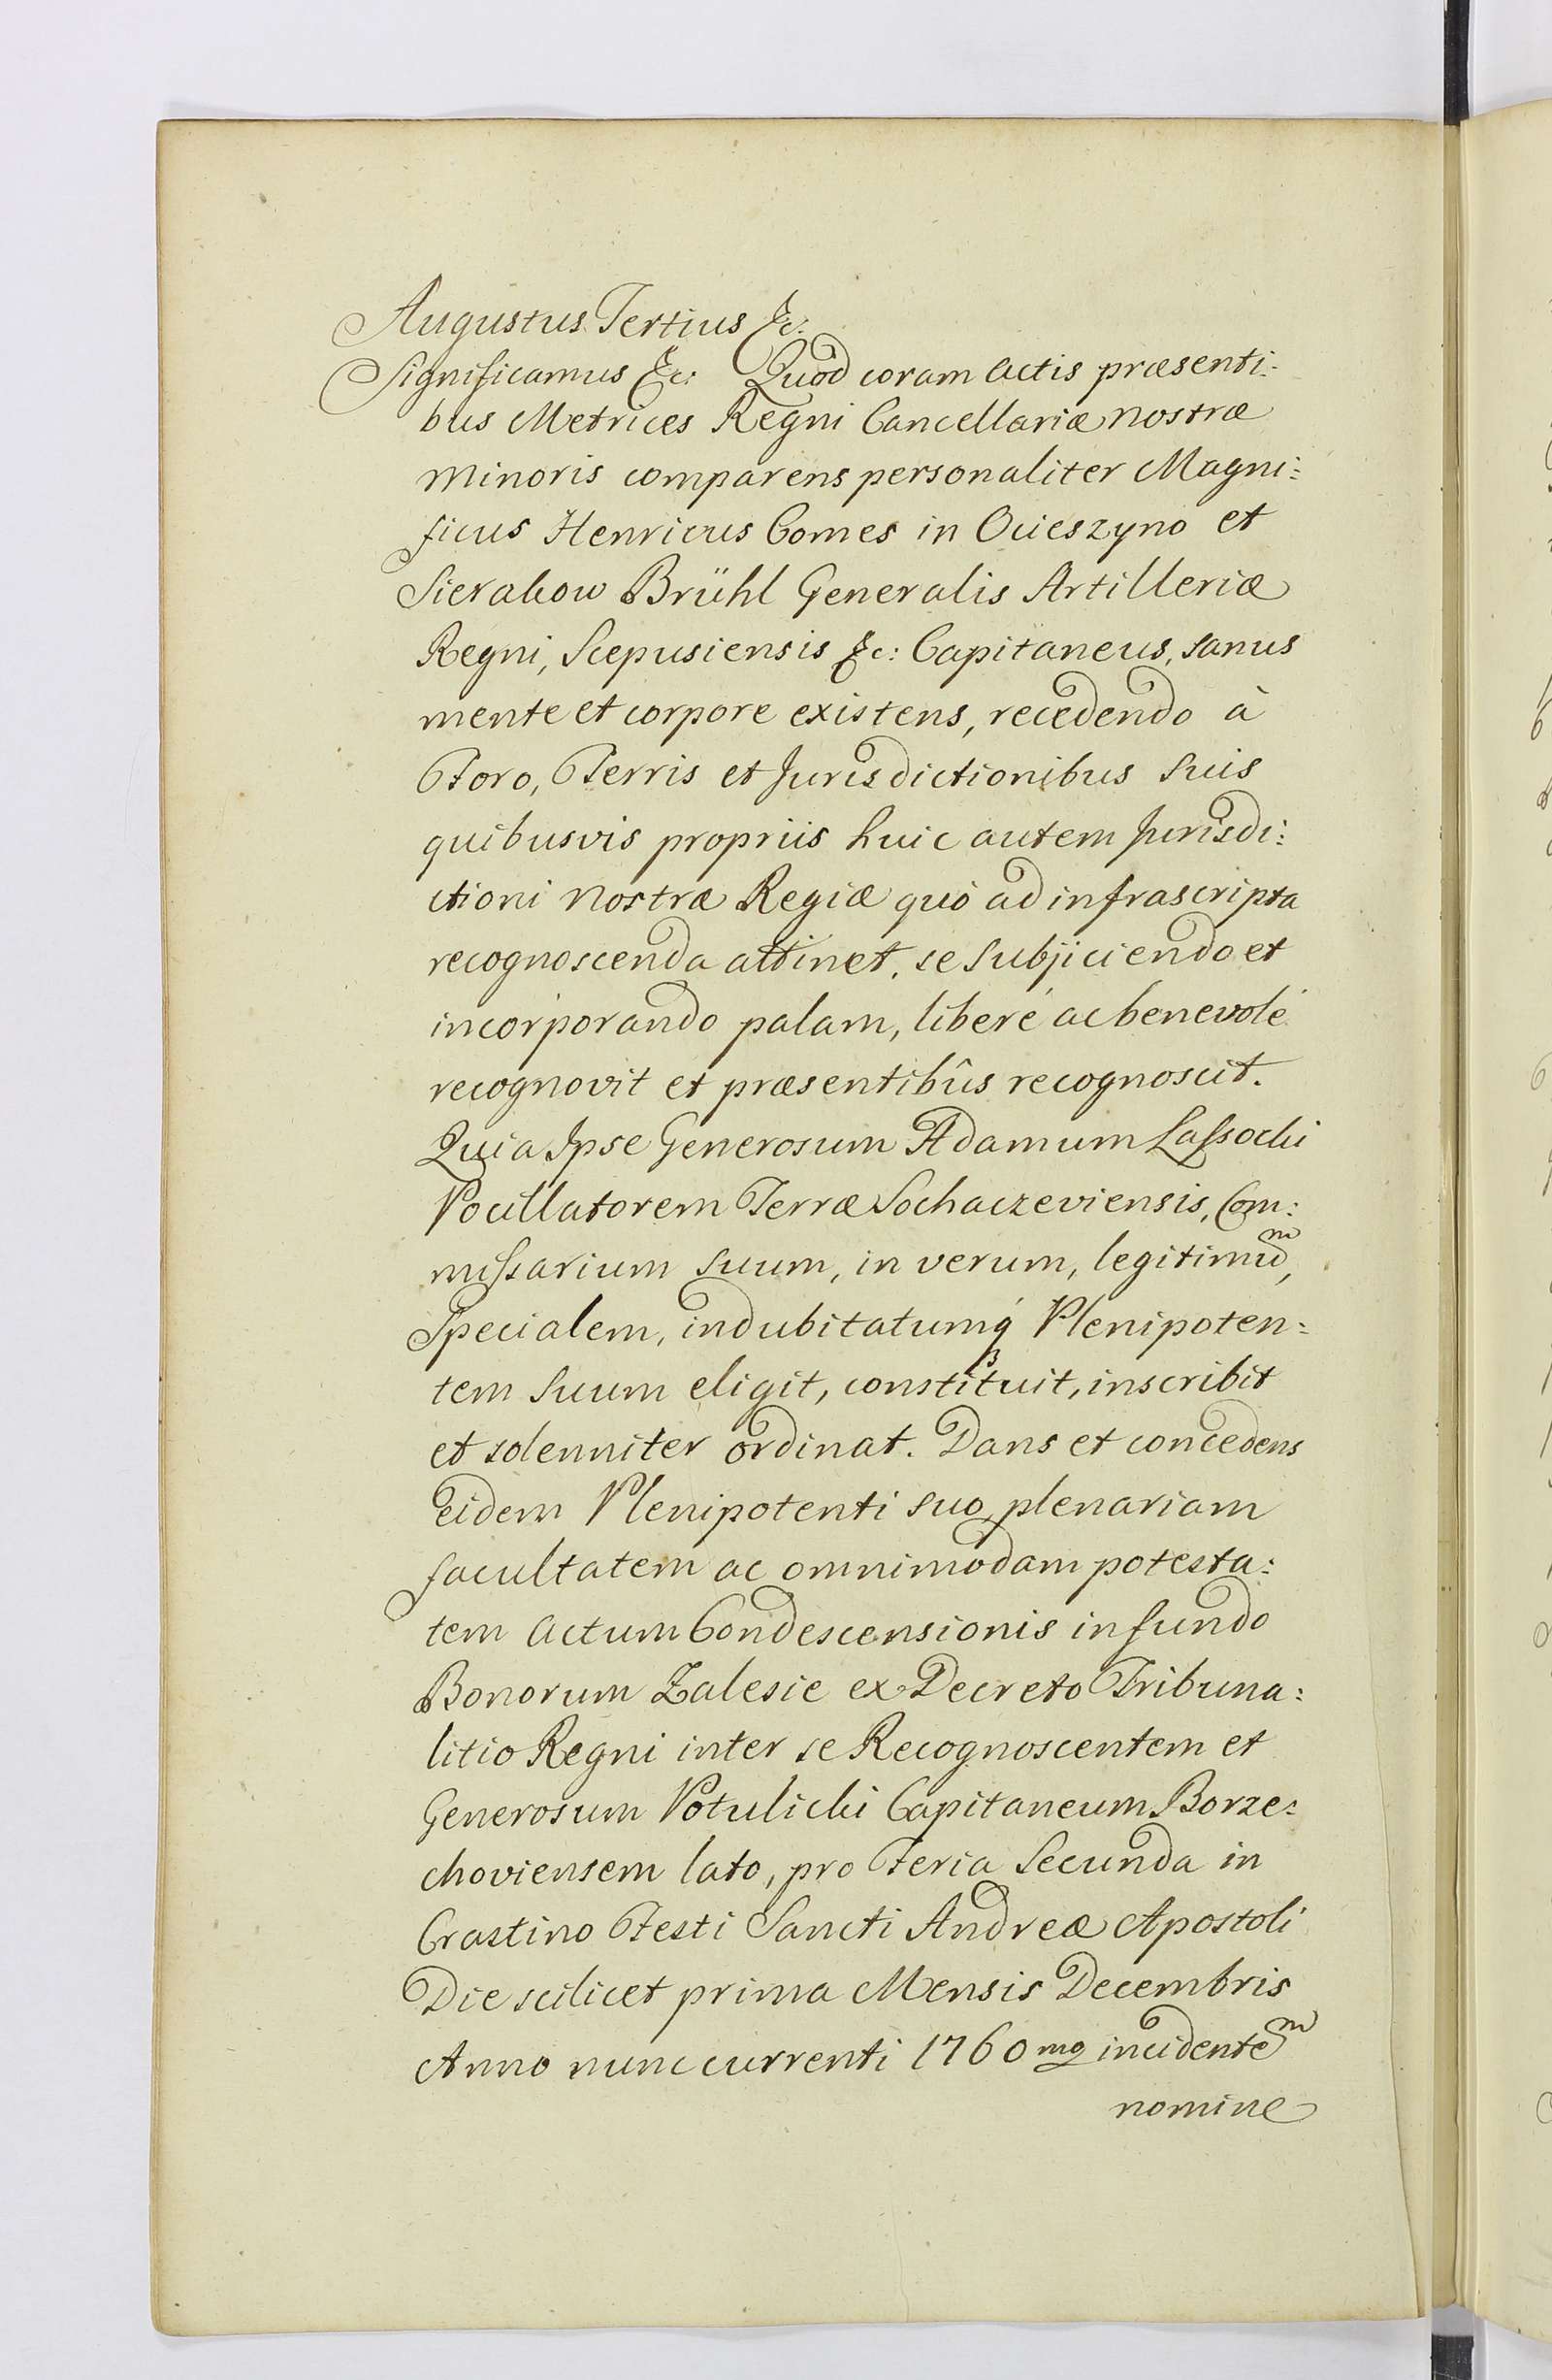 Augustus Tertius &c:
Significamus &c: Quod coram actis præsenti:
bus Metrices Regni Cancellariæ nostræ
minoris comparens personaliter Magni:
ficus Henricus Comes in Ocieszyno et
Sierakow Brühl Generalis Artilleriæ
Regni, Scepusiensis &c: Capitaneus, sanus
mente et corpore existens, recedendo à
Foro, Terris et Jurisdictionibus suis
quibusvis propriis huic autem Jurisdi:
ctioni nostræ Regiæ quò ad infrascripta
recognoscenda attinet, se subjiciendo et
incorporando palam, liberé ac benevolé
recognovit et præsentibûs recognoscit.
Quia Ipse Generosum Adamum Lassocki
Pocillatorem Terræ Sochaczeviensis, Com:
missarium suum, in verum, legitimuᵐ,
Specialem, indubitatumq́ Plenipoten:
tem suum eligit, constituit, inscribit
et solenniter ordinat. Dans et concedens
eidem Plenipotenti suo plenariam
facultatem ac omnimodam potesta:
tem actum Condescensionis in fundo
Bonorum Zalesie ex Decreto Tribuna:
litio Regni inter se Recognoscentem et
Generosum Potulicki Capitaneum Borze:
choviensem lato, pro Feria Secunda in
Crastino Festi Sancti Andreæ Apostoli
Die scilicet prima Mensis Decembris
Anno nunc currenti 1760mo incidenteᵐ
nomine